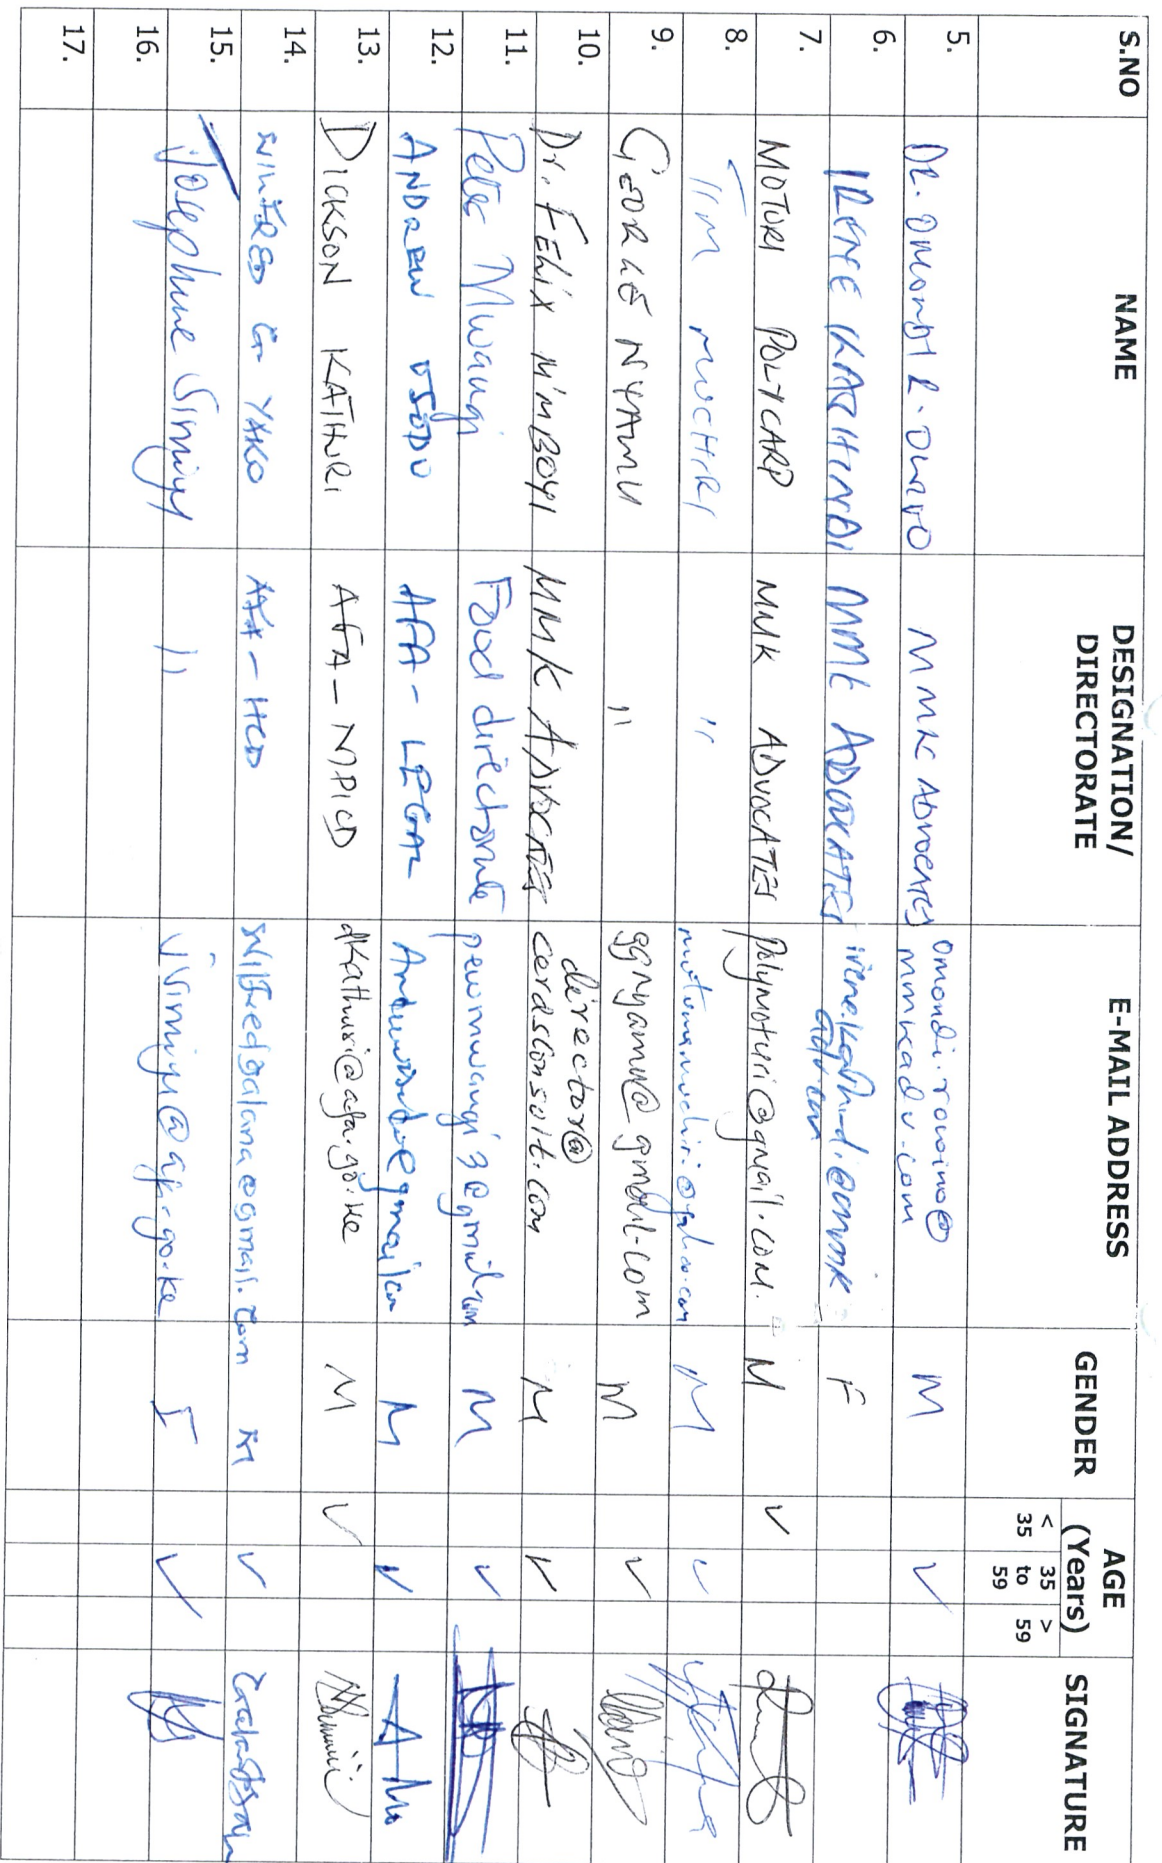 S.NO NAME DESIGNATION/ DIRECTORATE E-MAIL ADDRESS GENDER AGE (Years) SIGNATURE
< 35 35 to 59 > 59
5. DR. OMONDI R. OWINO MMK ADVOCATES omondi.rowino@ M ✓
mmkadv.com
6. IRENE KACHINDI MMK ADVOCATES irene.kachindi@mmk F
adv.com
7. MOTURI POLYCARP MMK ADVOCATES polymoturi@gmail.com. M ✓
8. TIM MUCHIRI " M ✓
9. GEORGE NYAMU " ggnyamu@gmail.com M ✓
10. Dr. FELIX M'MBOYI MMK ADVOCATES director@ M ✓
cerasconsult.com
11. Peter Mwangi Food directorate pewmwangi3@gmail.com M ✓
12. ANDREW OSODO AFA - LEGAL M ✓
13. DICKSON KATHURI AFA - NPICD dkathuri@afa.go.ke M ✓
14. WILFRED G. YAKO AFA - HCD M ✓
15. Josephine Simiyu " jsimiyu@afa.go.ke F ✓
16.
17.